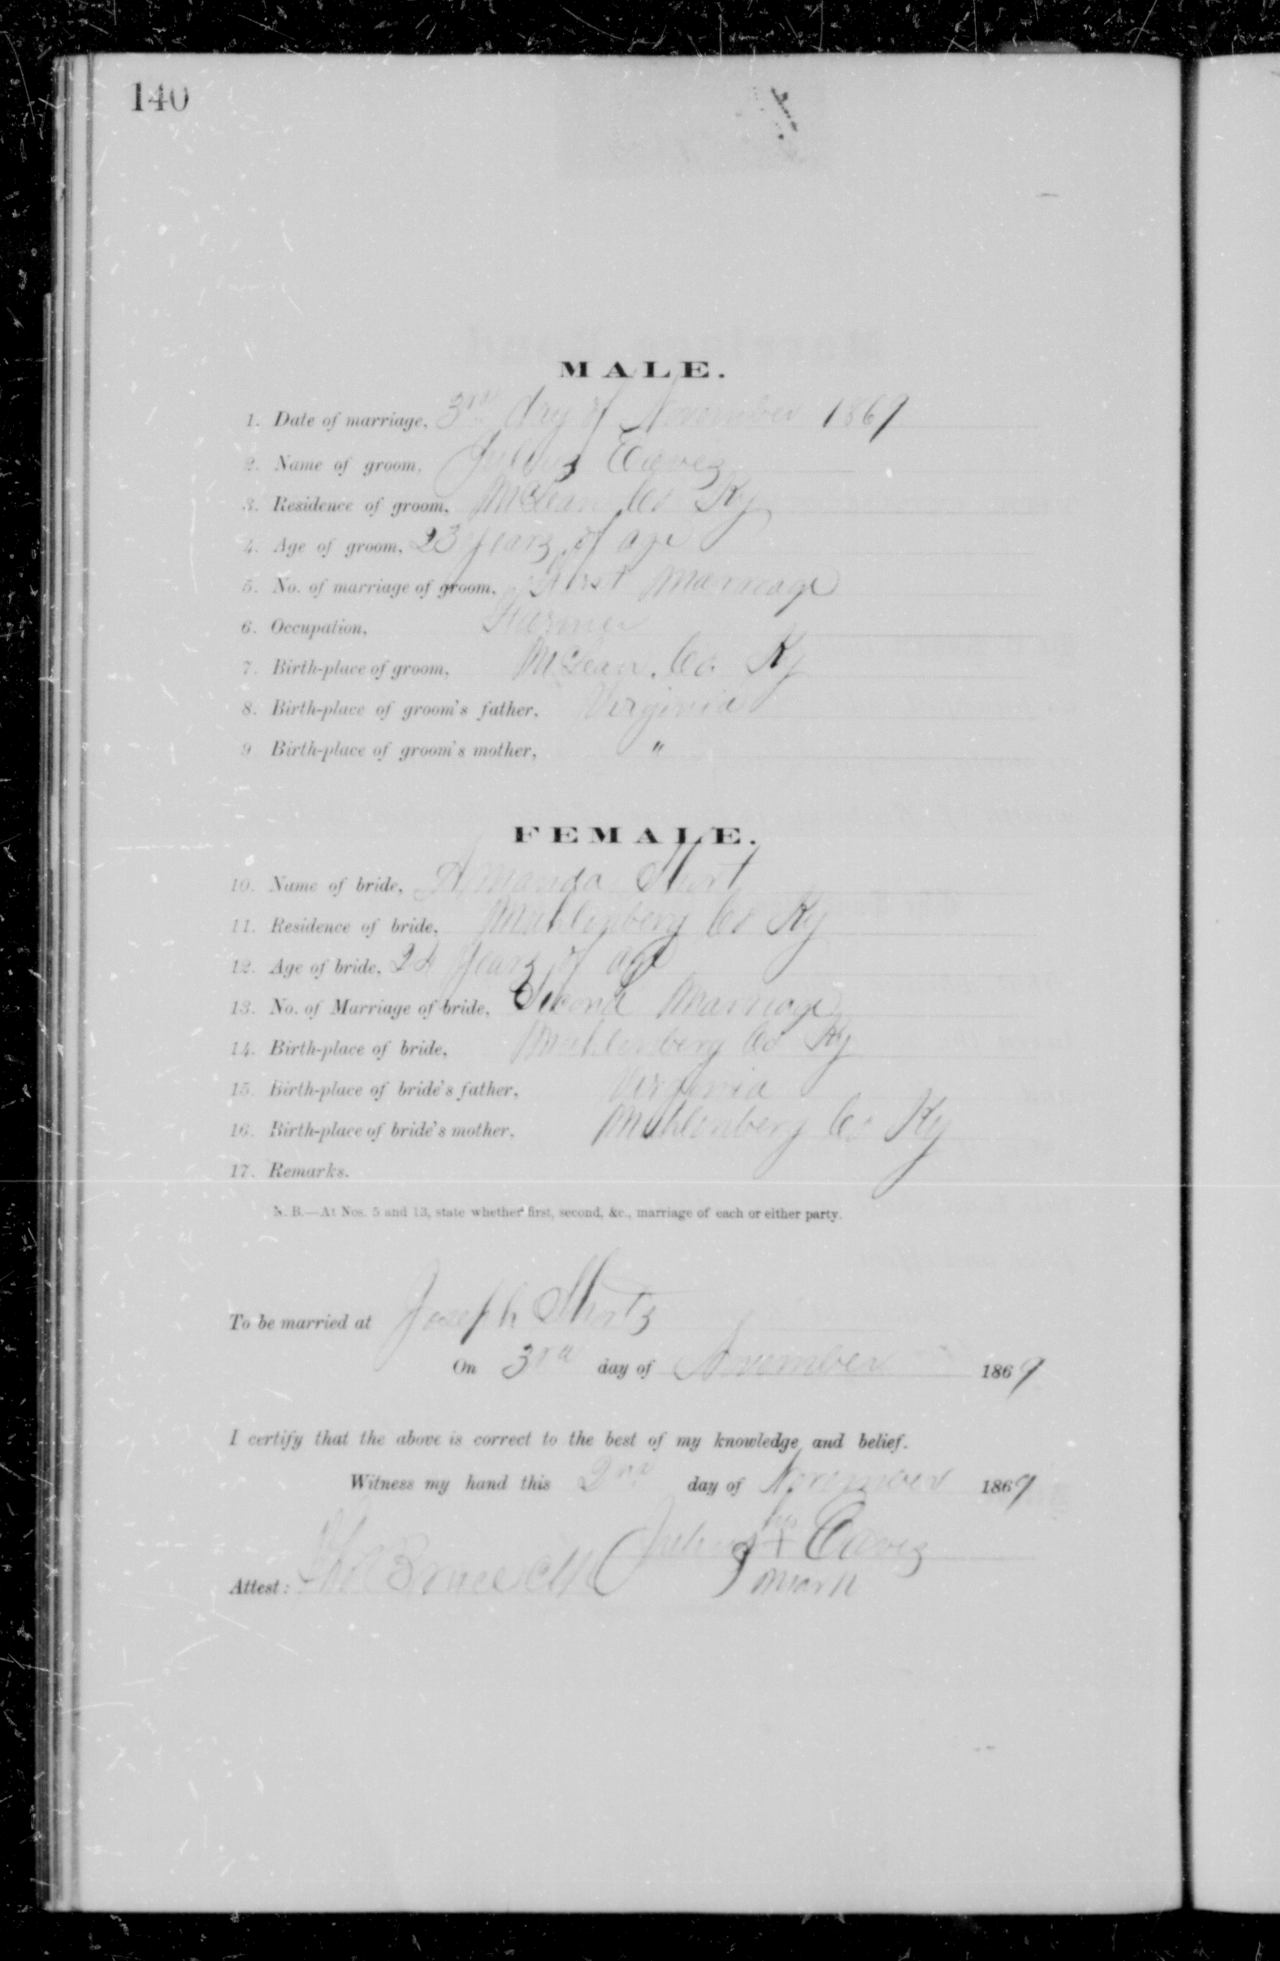 140
MALE.
1. Date of marriage, 3rd day of November 1869
2. Name of groom, Julius Eavez
3. Residence of groom, McLean Co Ky
4. Age of groom, 23 years of age
5. No. of marriage of groom, First Marriage
6. Occupation, Farmer
7. Birth-place of groom, McLean Co. Ky
8. Birth-place of groom's father, Virginia
9 Birth-place of groom's mother, "
FEMALE.
10. Name of bride, Amanda Short
11. Residence of bride, Muhlenberg Co Ky
12. Age of bride, 24 years of age
13. No. of Marriage of bride, Second Marriage
14. Birth-place of bride, Muhlenberg Co Ky
15. Birth-place of bride's father, Virginia
16. Birth-place of bride's mother, Muhlenberg Co Ky
17. Remarks.
N. B.—At Nos. 5 and 13, state whether first, second, &c., marriage of each or either party.
To be married at Joseph Shorts
On 3rd day of November 1869
I certify that the above is correct to the best of my knowledge and belief.
Witness my hand this 2nd day of November 1869
his
Julius + Eavez
mark
Attest: Bruce